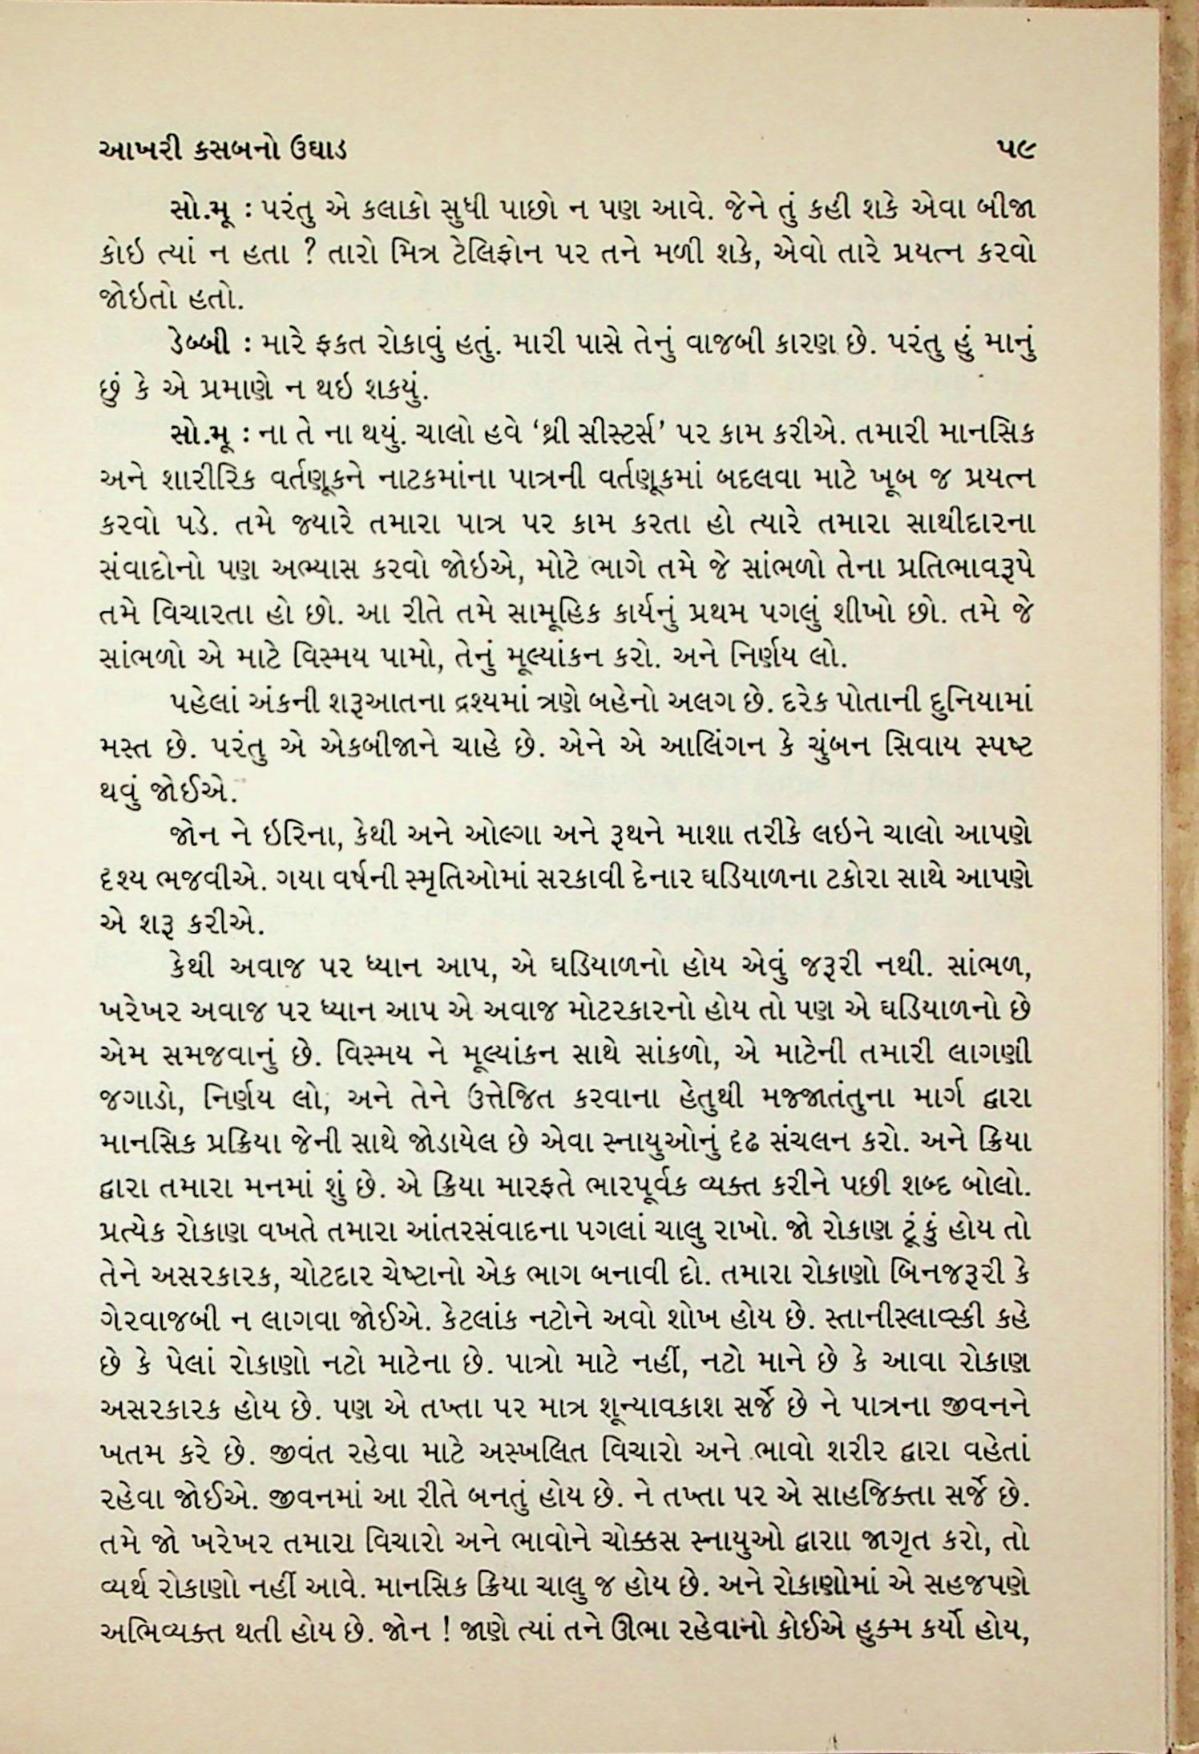 આખરી કસબનો ઉઘાડ ૫૯
સો.મૂ : પરંતુ એ કલાકો સુધી પાછો ન પણ આવે. જેને તું કહી શકે એવા બીજા
કોઇ ત્યાં ન હતા ? તારો મિત્ર ટેલિફોન પર તને મળી શકે, એવો તારે પ્રયત્ન કરવો
જોઇતો હતો.
ડેબ્બી : મારે ફકત રોકાવું હતું. મારી પાસે તેનું વાજબી કારણ છે. પરંતુ હું માનું
છું કે એ પ્રમાણે ન થઇ શકયું.
સો.મૂ : ના તે ના થયું. ચાલો હવે ‘થ્રી સીસ્ટર્સ’ પર કામ કરીએ. તમારી માનસિક
અને શારીરિક વર્તણૂકને નાટકમાંના પાત્રની વર્તણૂકમાં બદલવા માટે ખૂબ જ પ્રયત્ન
કરવો પડે. તમે જ્યારે તમારા પાત્ર પર કામ કરતા હો ત્યારે તમારા સાથીદારના
સંવાદોનો પણ અભ્યાસ કરવો જોઇએ, મોટે ભાગે તમે જે સાંભળો તેના પ્રતિભાવરૂપે
તમે વિચારતા હો છો. આ રીતે તમે સામૂહિક કાર્યનું પ્રથમ પગલું શીખો છો. તમે જે
સાંભળો એ માટે વિસ્મય પામો, તેનું મૂલ્યાંકન કરો. અને નિર્ણય લો.
પહેલાં અંકની શરૂઆતના દ્રશ્યમાં ત્રણે બહેનો અલગ છે. દરેક પોતાની દુનિયામાં
મસ્ત છે. પરંતુ એ એકબીજાને ચાહે છે. એને એ આલિંગન કે ચુંબન સિવાય સ્પષ્ટ
થવું જોઈએ.
જોન ને ઇરિના, કેથી અને ઓલ્ગા અને રૂથને માશા તરીકે લઇને ચાલો આપણે
દૃશ્ય ભજવીએ. ગયા વર્ષની સ્મૃતિઓમાં સરકાવી દેનાર ઘડિયાળના ટકોરા સાથે આપણે
એ શરૂ કરીએ.
કેથી અવાજ પર ધ્યાન આપ, એ ઘડિયાળનો હોય એવું જરૂરી નથી. સાંભળ,
ખરેખર અવાજ પર ધ્યાન આપ એ અવાજ મોટરકારનો હોય તો પણ એ ઘડિયાળનો છે
એમ સમજવાનું છે. વિસ્મય ને મૂલ્યાંકન સાથે સાંકળો, એ માટેની તમારી લાગણી
જગાડો, નિર્ણય લો, અને તેને ઉત્તેજિત કરવાના હેતુથી મજ્જાતંતુના માર્ગ દ્વારા
માનસિક પ્રક્રિયા જેની સાથે જોડાયેલ છે એવા સ્નાયુઓનું દૃઢ સંચલન કરો. અને ક્રિયા
દ્વારા તમારા મનમાં શું છે. એ ક્રિયા મારફતે ભારપૂર્વક વ્યક્ત કરીને પછી શબ્દ બોલો.
પ્રત્યેક રોકાણ વખતે તમારા આંતરસંવાદના પગલાં ચાલુ રાખો. જો રોકાણ ટૂંકું હોય તો
તેને અસરકારક, ચોટદાર ચેષ્ટાનો એક ભાગ બનાવી દો. તમારા રોકાણો બિનજરૂરી કે
ગેરવાજબી ન લાગવા જોઈએ. કેટલાંક નટોને અવો શોખ હોય છે. સ્તાનીસ્લાવ્સ્કી કહે
છે કે પેલાં રોકાણો નટો માટેના છે. પાત્રો માટે નહીં, નટો માને છે કે આવા રોકાણ
અસરકારક હોય છે. પણ એ તખ્તા પર માત્ર શૂન્યાવકાશ સર્જે છે ને પાત્રના જીવનને
ખતમ કરે છે. જીવંત રહેવા માટે અસ્ખલિત વિચારો અને ભાવો શરીર દ્વારા વહેતાં
રહેવા જોઈએ. જીવનમાં આ રીતે બનતું હોય છે. ને તખ્તા પર એ સાહજિક્તા સર્જે છે.
તમે જો ખરેખર તમારા વિચારો અને ભાવોને ચોક્કસ સ્નાયુઓ દ્વારાા જાગૃત કરો, તો
વ્યર્થ રોકાણો નહીં આવે. માનસિક ક્રિયા ચાલુ જ હોય છે. અને રોકાણોમાં એ સહજપણે
અભિવ્યક્ત થતી હોય છે. જોન ! જાણે ત્યાં તને ઊભા રહેવાનો કોઈએ હુક્મ કર્યો હોય,